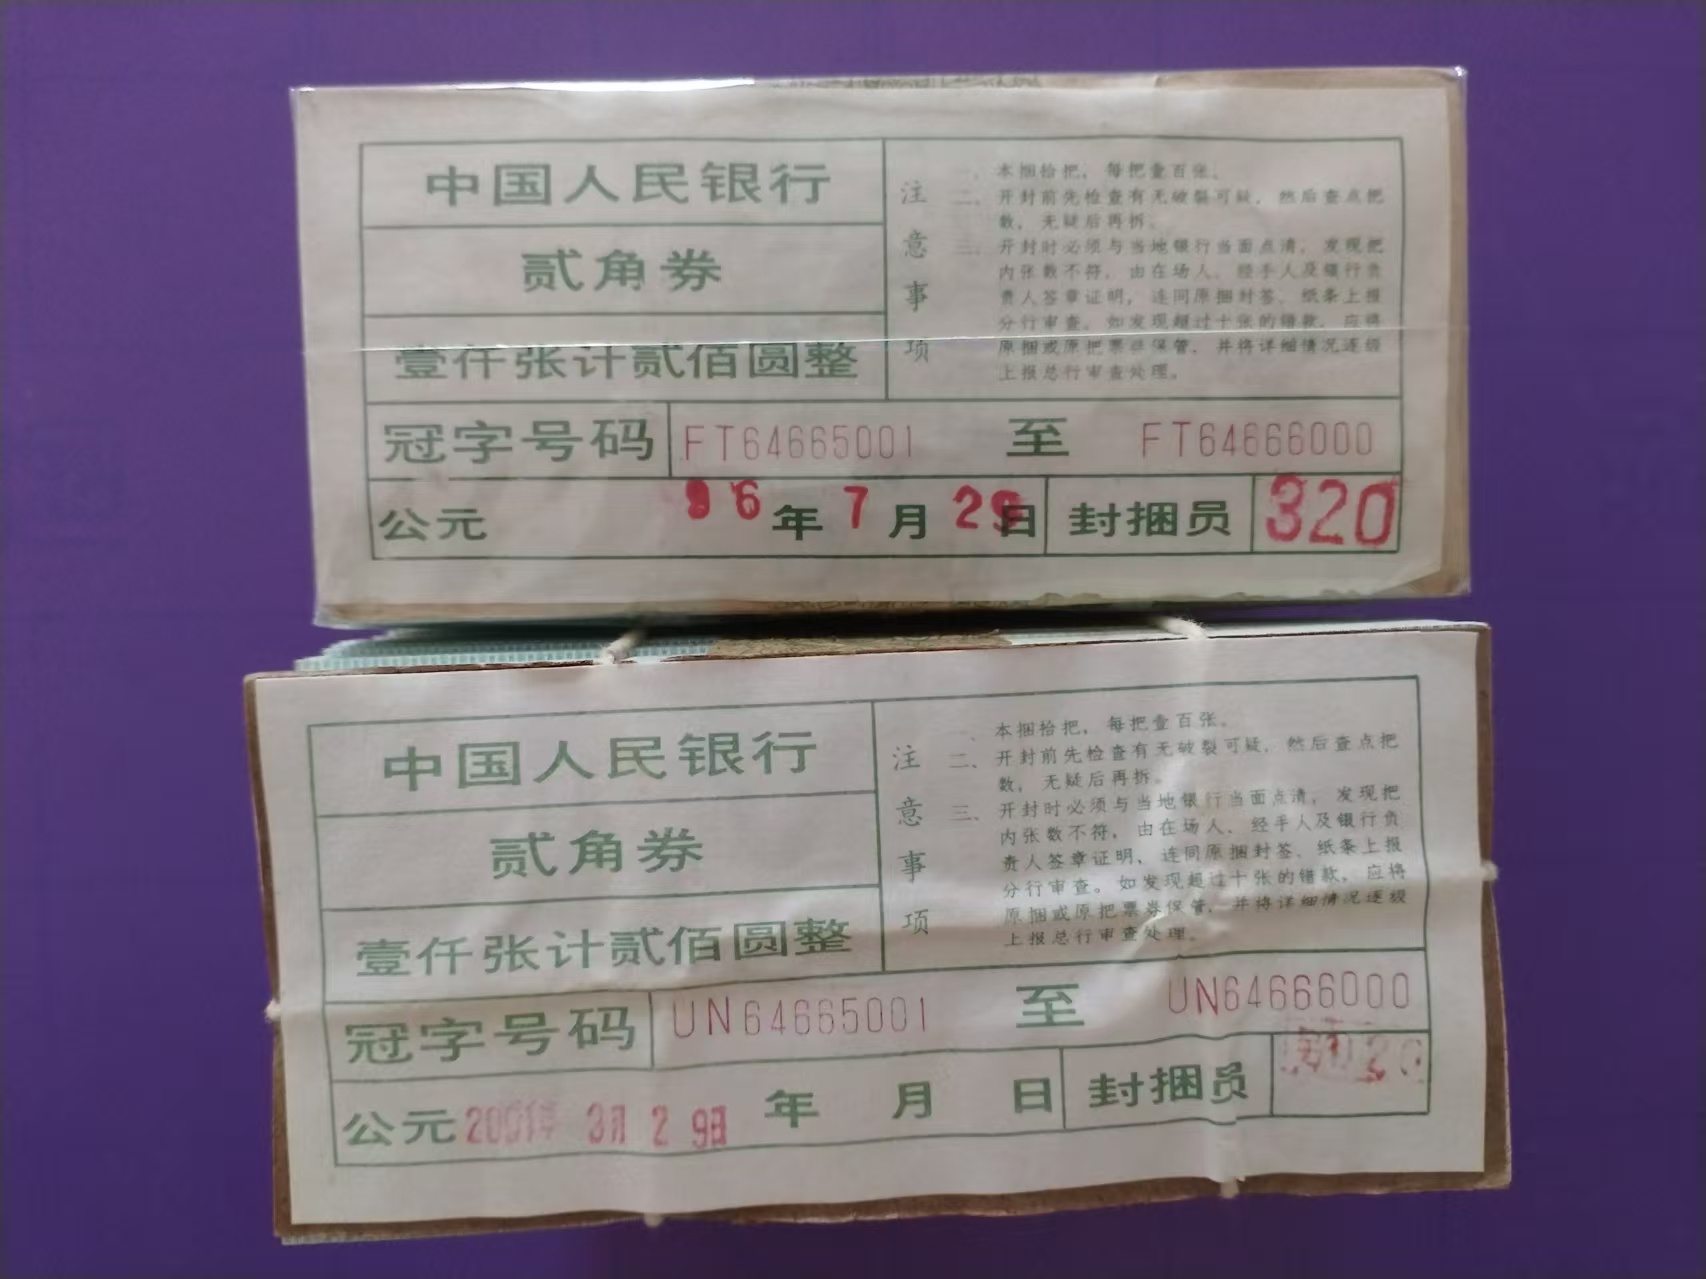 中国人民银行
贰角券
壹仟张计贰佰圆整
注意事项
一、本捆拾把，每把壹百张。
二、开封前先检查有无破裂可疑，然后查点把
数，无疑后再拆。
三、开封时必须与当地银行当面点清，发现把
内张数不符，由在场人、经手人及银行负
责人签章证明，连同原捆封签、纸条上报
分行审查。如发现超过十张的错款，应将
原捆或原把票券保管，并将详细情况逐级
上报总行审查处理。
冠字号码 FT64665001 至 FT64666000
公元 96年7月29日 封捆员 320
中国人民银行
贰角券
壹仟张计贰佰圆整
注意事项
一、本捆拾把，每把壹百张。
二、开封前先检查有无破裂可疑，然后查点把
数，无疑后再拆。
三、开封时必须与当地银行当面点清，发现把
内张数不符，由在场人、经手人及银行负
责人签章证明，连同原捆封签、纸条上报
分行审查。如发现超过十张的错款，应将
原捆或原把票券保管，并将详细情况逐级
上报总行审查处理。
冠字号码 UN64665001 至 UN64666000
公元 2001年 3月 29日 年 月 日 封捆员